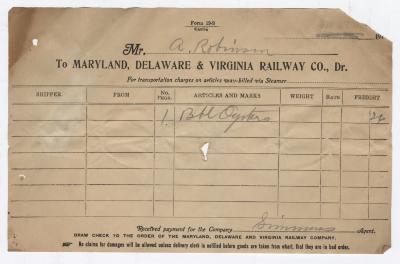 Form 19-9
19
Mr. A. Robinson
To MARYLAND, DELAWARE & VIRGINIA RAILWAY CO., Dr.
For transportation charges on articles way-billed via Steamer
SHIPPER FROM No. Pkgs. ARTICLES AND MARKS WEIGHT RATE FREIGHT
1 Bbl Oysters
Received payment for the Company Simmons Agent.
DRAW CHECK TO THE ORDER OF THE MARYLAND, DELAWARE AND VIRGINIA RAILWAY COMPANY.
No claims for damages will be allowed unless delivery clerk is notified before goods are taken from wharf, that they are in bad order.